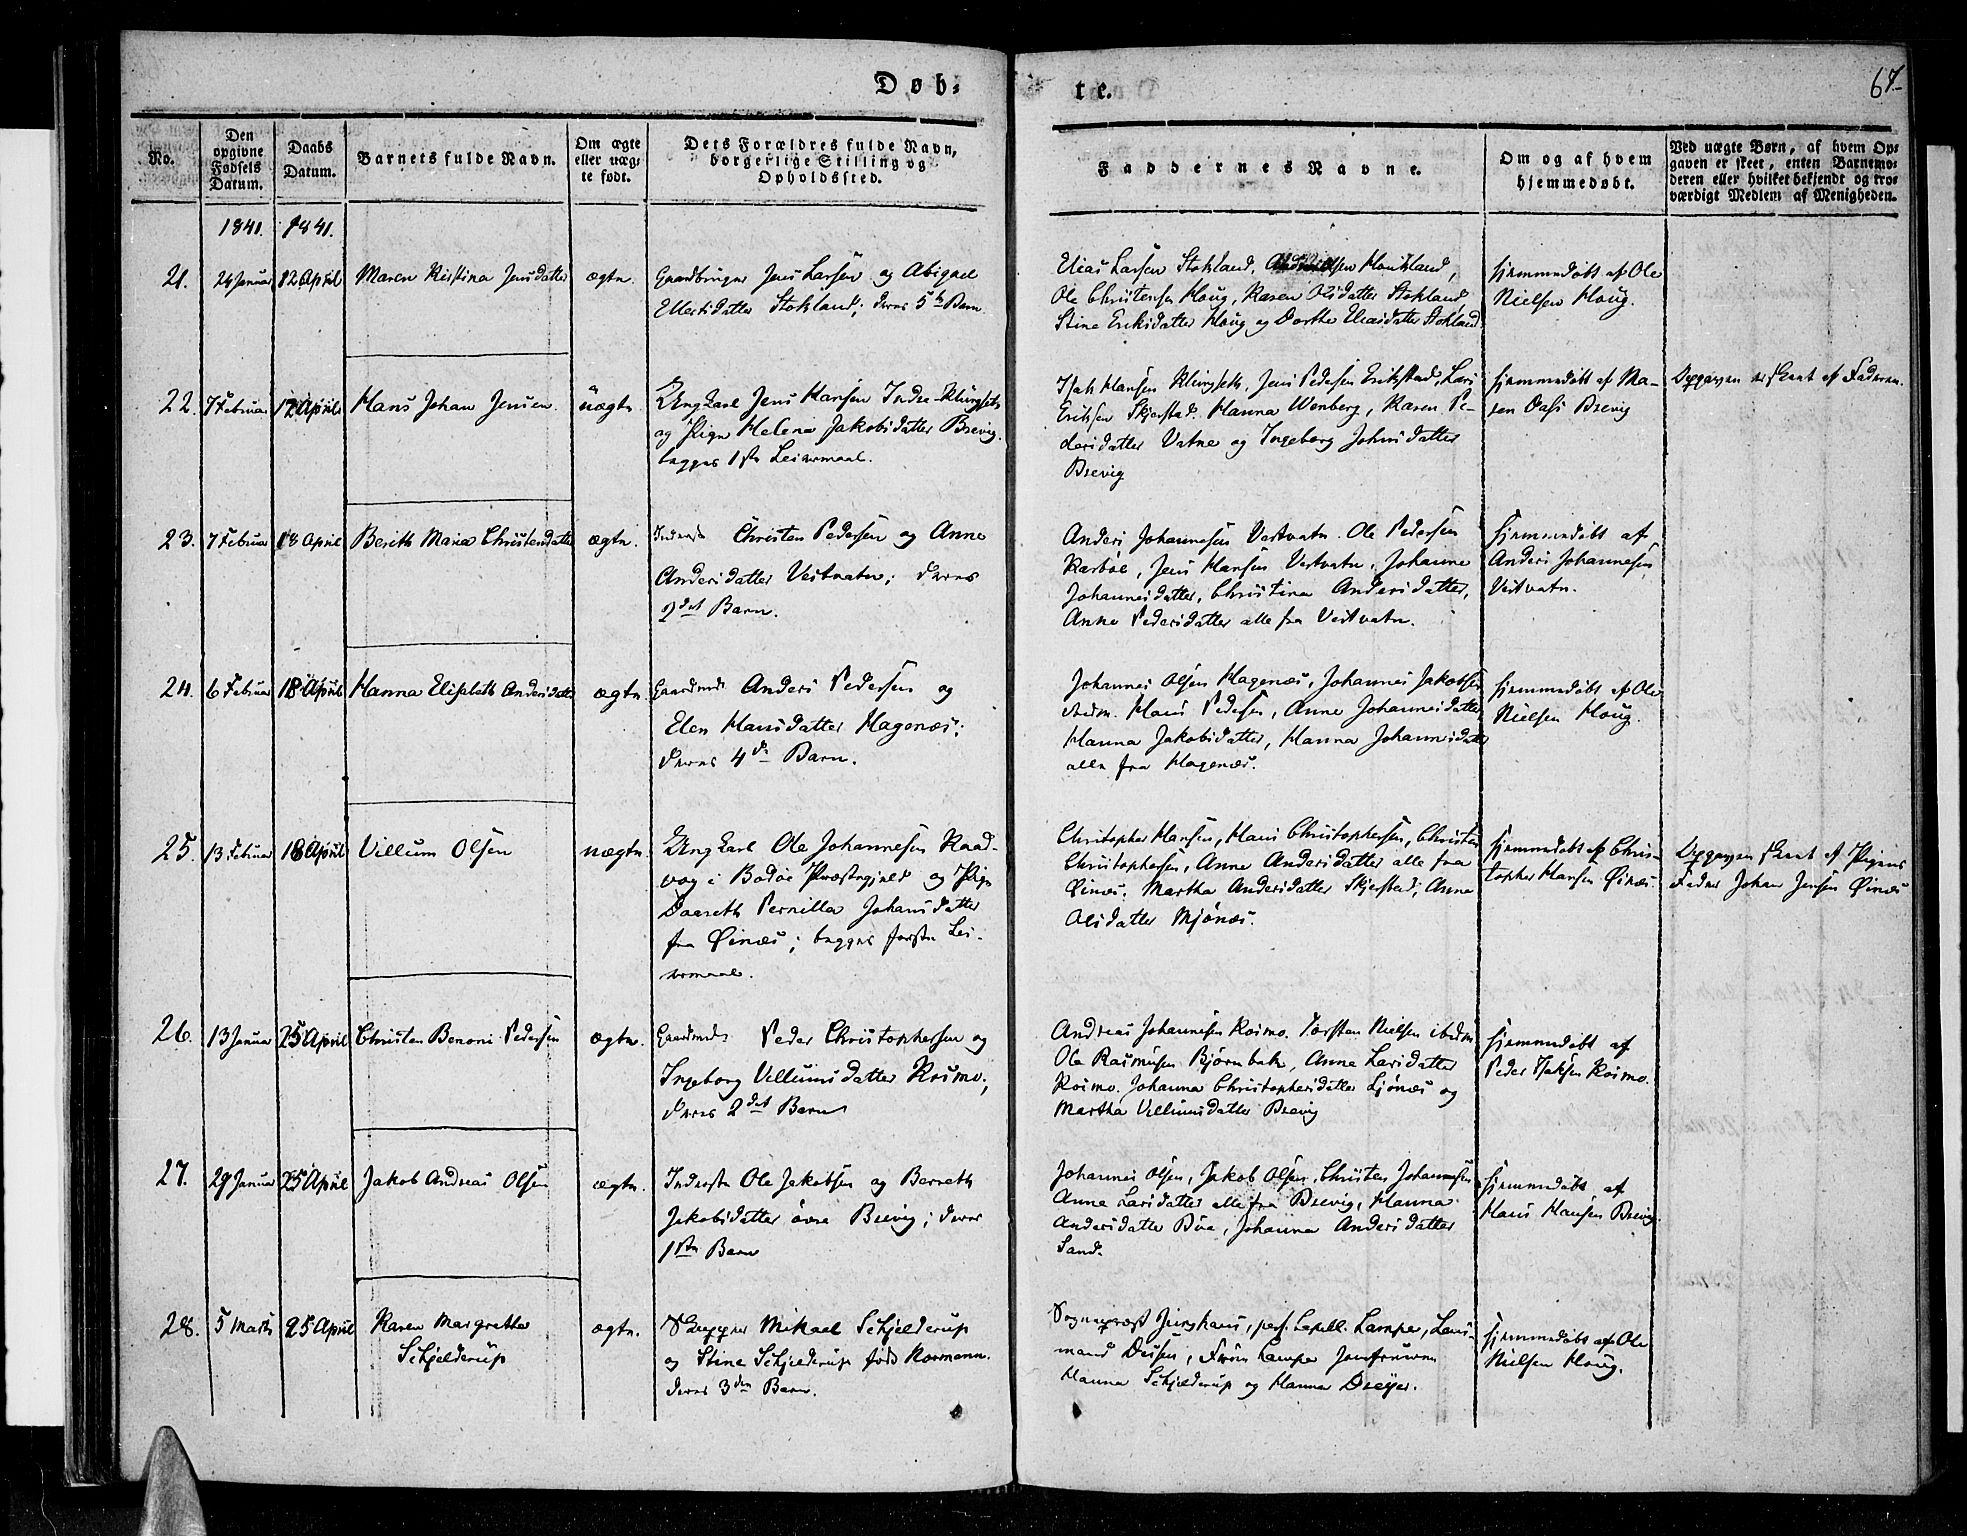 Døb-
te.
67
No.
Den opgivne Fødsels Datum.
Daabs Datum.
Barnets fulde Navn.
Om ægte eller uæg-te født.
Dets Forældres fulde Navn, borgerlige Stilling og Opholdssted.
Faddernes Navne.
Om og af hvem hjemmedøbt.
Ved uægte Børn, af hvem Op-gaven er skeet, enten Barnemo-deren eller hvilket bekjendt og tro-værdigt Medlem af Menigheden.
1841. 1841.
21. 24 Januar 12 April Maren Kristina Jensdatter ægte.
Gaardbruger Jens Larsen og Abigael
Ellertsdatter Stokland; deres 5te Barn
Elias Larsen Stokland, Houkland,
Ole Christensen Houg, Karen Olsdatter Stokland,
Stine Eriksdatter Houg og Dorthe Eliasdatter Stokland
hjemmedøbt af Ole
Nielsen Houg.
22. 7 Februar 12 April Hans Johan Jensen uægte
Ungkarl Jens Hansen Indre-Klungset
og Pige Helena Jakobsdatter Brevig.
begges 1ste Leiermaal.
Isak Hansen Klungseth, Jens Pedersen Erikstad, Lars
Eriksen Skjerstad. Hanna Wenberg, Karen Pe-
dersdatter Vatne og Ingeborg Johnsdatter
Brevig
hjemmedøbt af Ma-
Brevig
Opgaven er skeet af Faderen.
23. 7 Februar 18 April Berith Maria Christensdatter ægte.
Inderst Christen Pedersen og Anne
Andersdatter Vestvatn; deres
2det Barn.
Anders Johannesen Vestvatn. Ole Pedersen
Karbøe, Jens Hansen Vestvatn, Johanna
Johannesdatter, Christina Andersdatter,
Anne Pedersdatter alle fra Vestvatn.
hjemmedøbt af
Anders Johannesen
Vestvatn.
24. 6 Februar 18 April Hanna Elisabeth Andersdatter ægte.
Gaardmd. Anders Pedersen og
Elen Hansdatter Hagenæs;
deres 4de Barn.
Johannes Olsen Hagenæs, Johannes Jakobsen
ibidm. Hans Pedersen, Anne Johannesdatter
Hanna Jakobsdatter, Hanna Johannesdatter
alle fra Hagenæs.
hjemmedøbt af Ole
Nielsen Houg.
25. 13 Februar 18 April Villum Olsen uægte.
Ungkarl Ole Johannesen Kaad-
vog i Bodøe Præstegjeld og Pige
Daareth Pernilla Johansdatter
fra Øinæs; begges første Lei-
ermaal.
Christopher Hansen, Hans Christophersen, Christen
Christophersen, Anne Andersdatter alle fra
Øinæs. Martha Andersdatter Skjerstad; Anne
Olsdatter Mjønæs.
hjemmedøbt af Chris-
topher Hansen Øinæs.
Opgaven skeet af Pigens
Fader Johan Jensen Øinæs
26. 13 Januar 25 April Christen Benoni Pedersen ægte.
Gaardmd. Peder Christophersen og
Ingeborg Villumsdatter Kosmo;
deres 2det Barn
Andreas Johannesen Kosmo. Torsten Nielsen ibidm
Ole Rasmusen Bjørnbak, Anne Larsdatter
Kosmo. Johanna Christophersdatter Ljønæs og
Martha Villumsdatter Brevig
hjemmedøbt af
Peder Isaksen Kosmo.
27. 29 Januar 25 April Jakob Andreas Olsen ægte.
Inderste Ole Jakobsen og Berreth
Jakobsdatter øvre Brevig; deres
1ste Barn
Johannes Olsen, Jakob Olsen, Christen Johannesen
Anne Larsdatter alle fra Brevig, Hanna
Andersdatter Bue, Johanna Andersdatter
Sand.
hjemmedøbt af
Hans Hansen Brevig.
28. 5 Marts 25 April Karen Margrethe
Schjelderup
ægte.
Mikael Schjelderup
og Stine Schjelderup født Normann.
deres 3die Barn.
Sognepræst Junghans, pers. Capell. Lampe, Lens-
mand Dusen, Frøm Lampe Jomfruerne
Hanna Schjelderup og Hanna Dreyer.
hjemmedøbt af Ole
Nielsen Houg.